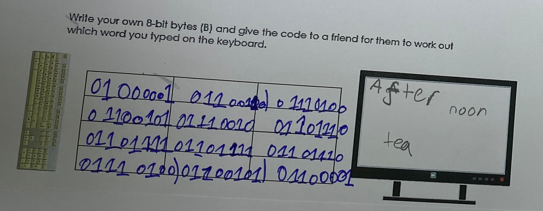 Write your own 8-bit bytes (B) and give the code to a friend for them to work out
which word you typed on the keyboard.
01000001 01100110 01110100
01100101 01110010 01101110
01101111 01101111 01101110
01110100 01100101 01100001
After
noon
tea